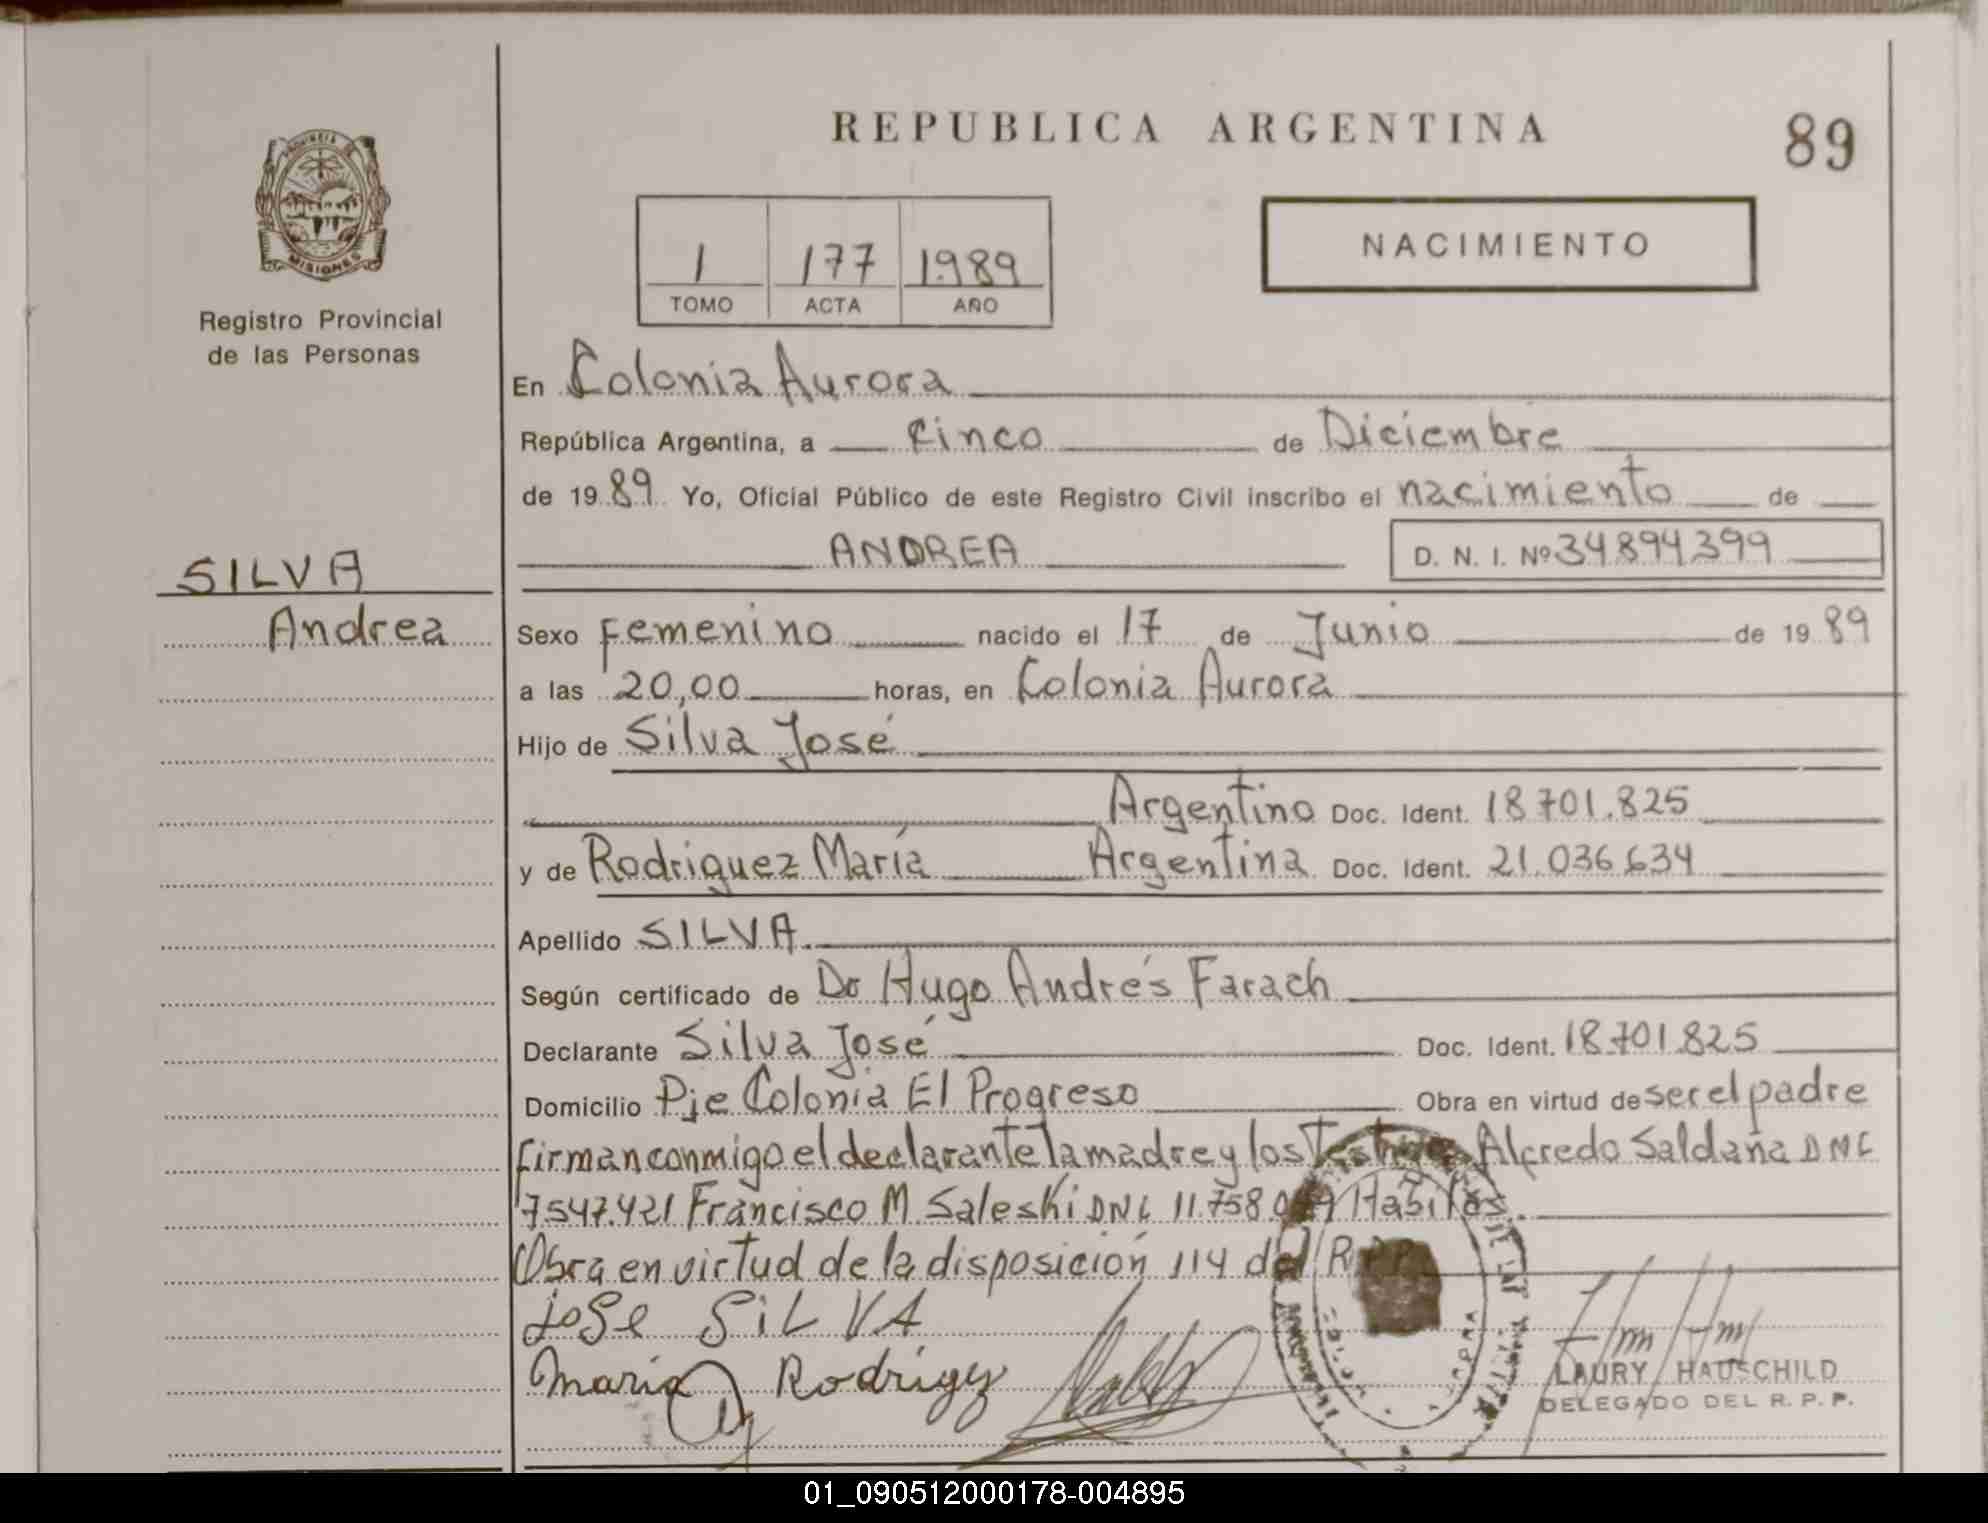 REPUBLICA ARGENTINA
89
PROVINCIA DE
MISIONES
Registro Provincial
de las Personas
1 177 1989
TOMO ACTA AÑO
NACIMIENTO
En Colonia Aurora
República Argentina, a cinco de Diciembre
de 1989 Yo, Oficial Público de este Registro Civil inscribo el nacimiento de
ANDREA D. N. I. Nº 34894399
SILVA
Andrea
Sexo Femenino nacido el 17 de Junio de 1989
a las 20,00 horas, en Colonia Aurora
Hijo de Silva José
Argentino Doc. Ident. 18701.825
y de Rodriguez María Argentina Doc. Ident. 21.036.634
Apellido SILVA
Según certificado de Dr Hugo Andrés Farach
Declarante Silva José Doc. Ident. 18.701.825
Domicilio Pje Colonia El Progreso Obra en virtud de ser el padre
firman conmigo el declarante la madre y los Alfredo Saldaña DNI
7547.421 Francisco M. Saleski DNI 11.758. Habiles.
Obra en virtud de la disposición 114 del R.P.P.
jose SiLVA
maria Rodrigz
LAURY HAUSCHILD
DELEGADO DEL R. P. P.
01_090512000178-004895